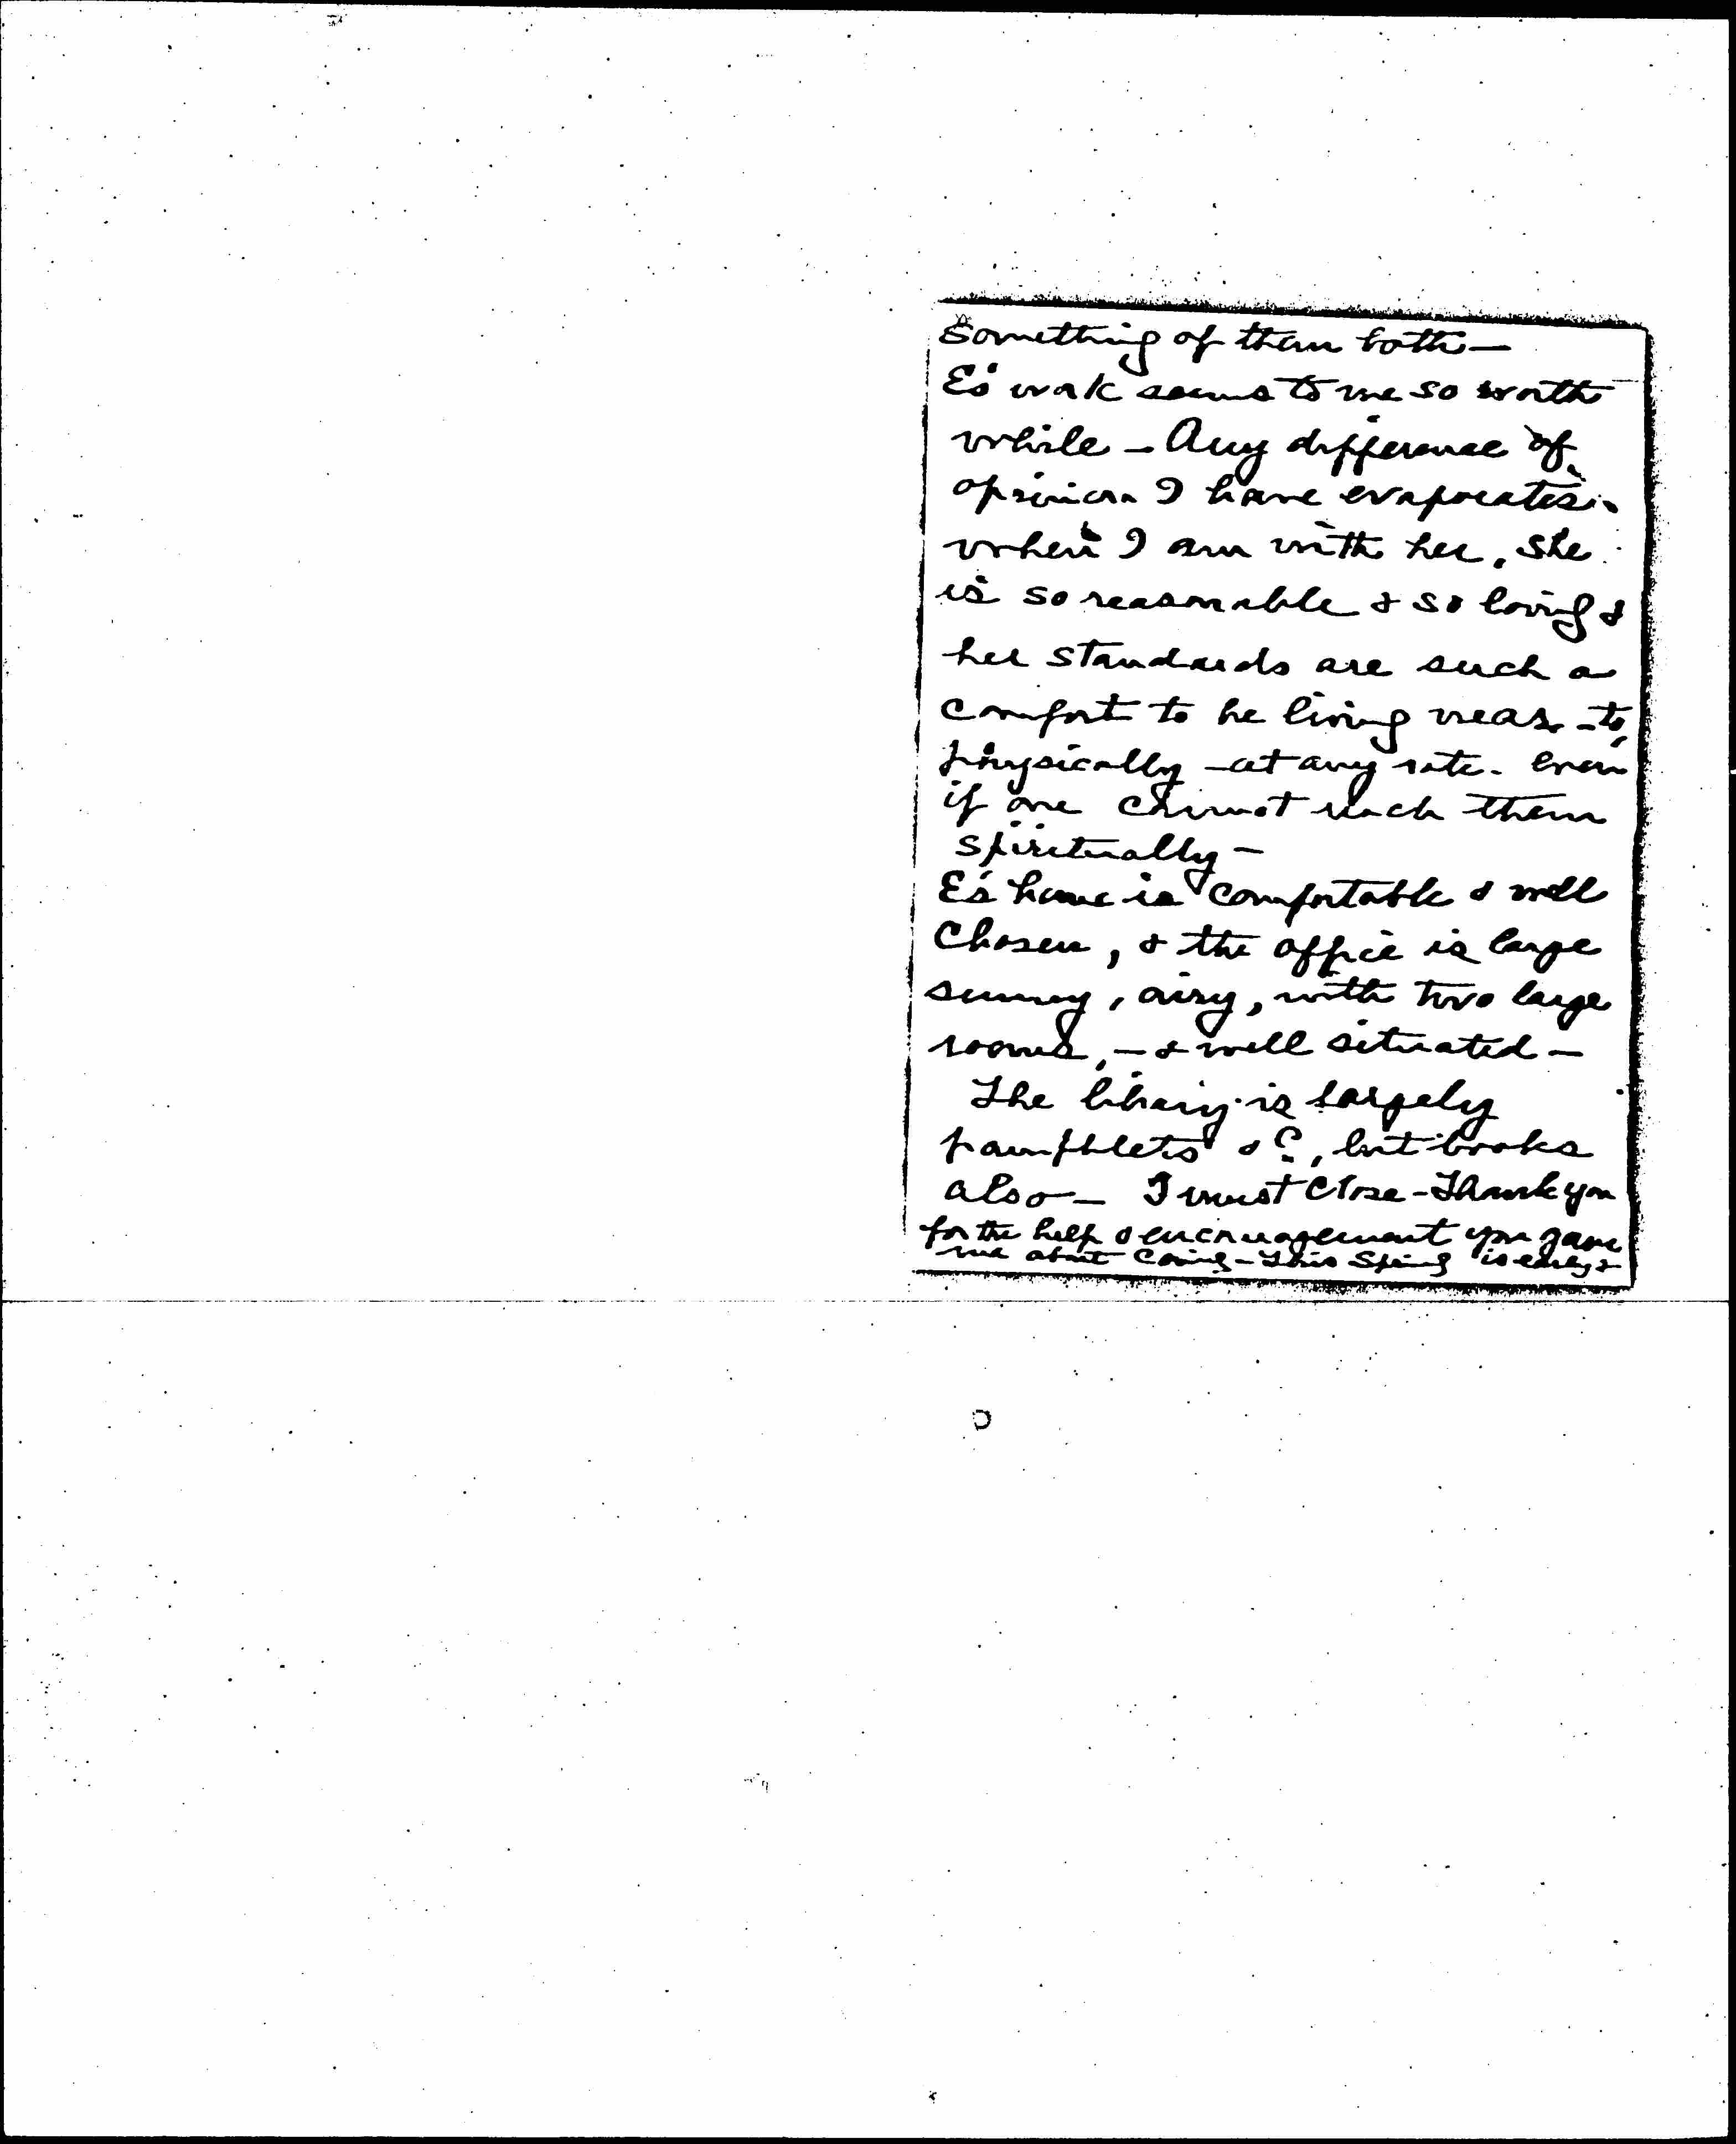 Something of them both —
E's work seems to me so worth
while — Any difference of
opinion I have evaporates
when I am with her, She
is so reasonable & so loving &
her standards are such a
comfort to be living near - to,
physically - at any rate - even
if one cannot reach them
spiritually —
E's home is comfortable & well
Chosen, & the office is large
sunny, airy, with two large
rooms, — & well situated —
The library is largely
pamphlets &c, but books
also — I must close - Thank you
for the help & encouragement you gave
me about coming - This Spring is early &